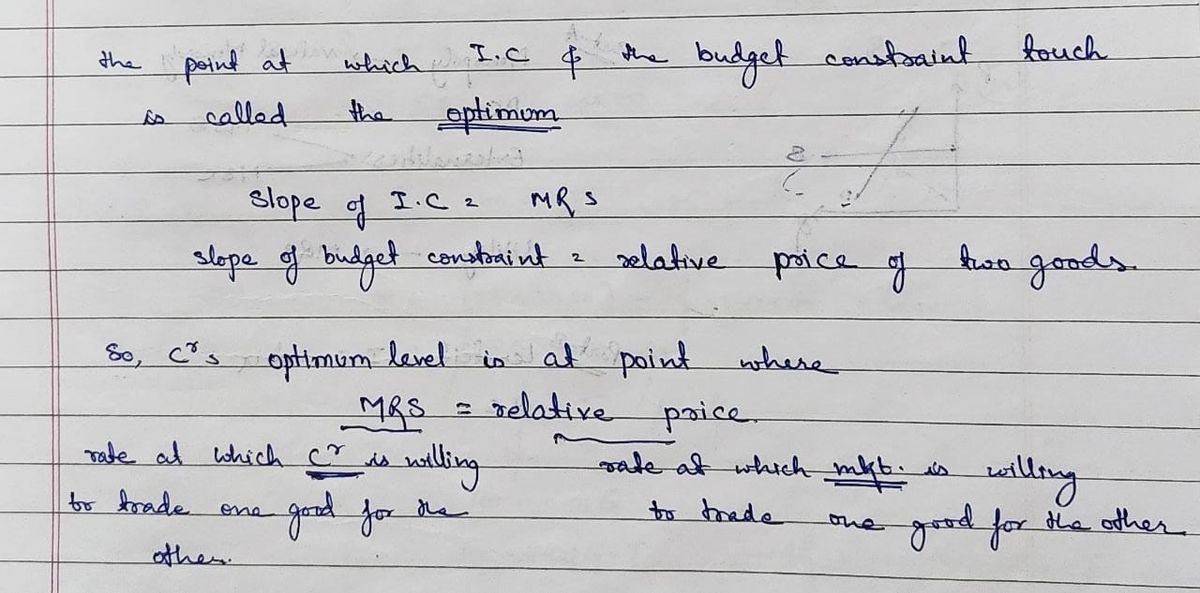 the point at which I.C & the budget constraint touch
is called the optimum
slope of I.C = MRS
slope of budget constraint = relative price of two goods.
So, cʳs optimum level is at point where
MRS = relative price.
rate at which cʳ is willing rate at which mkt. is willing
to trade one good for the to trade one good for the other
other.